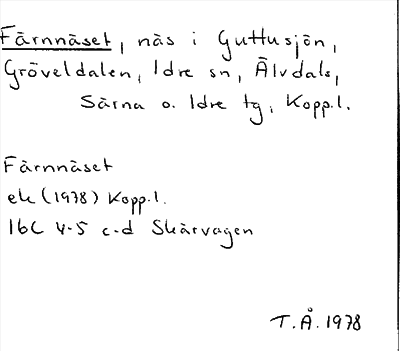 Färnnäset, näs i Guttusjön,
Gröveldalen, Idre sn, Älvdals,
Särna o. Idre tg, Kopp.l.
Färnnäset
ek (1978) Kopp.l.
16C 4-5 c-d Skärvagen
T.Å. 1978